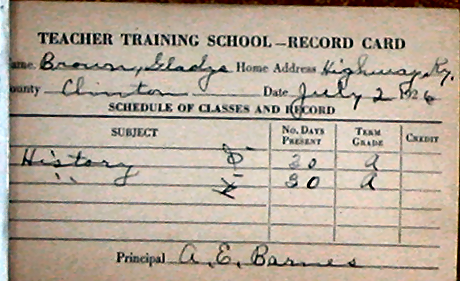 TEACHER TRAINING SCHOOL – RECORD CARD
ame. Brown, Gladys Home Address Highway, Ky.
ounty Clinton Date July 2 1926
SCHEDULE OF CLASSES AND RECORD
SUBJECT No. DAYS PRESENT TERM GRADE CREDIT
History 20 a
" 30 a
Principal A. E. Barnes